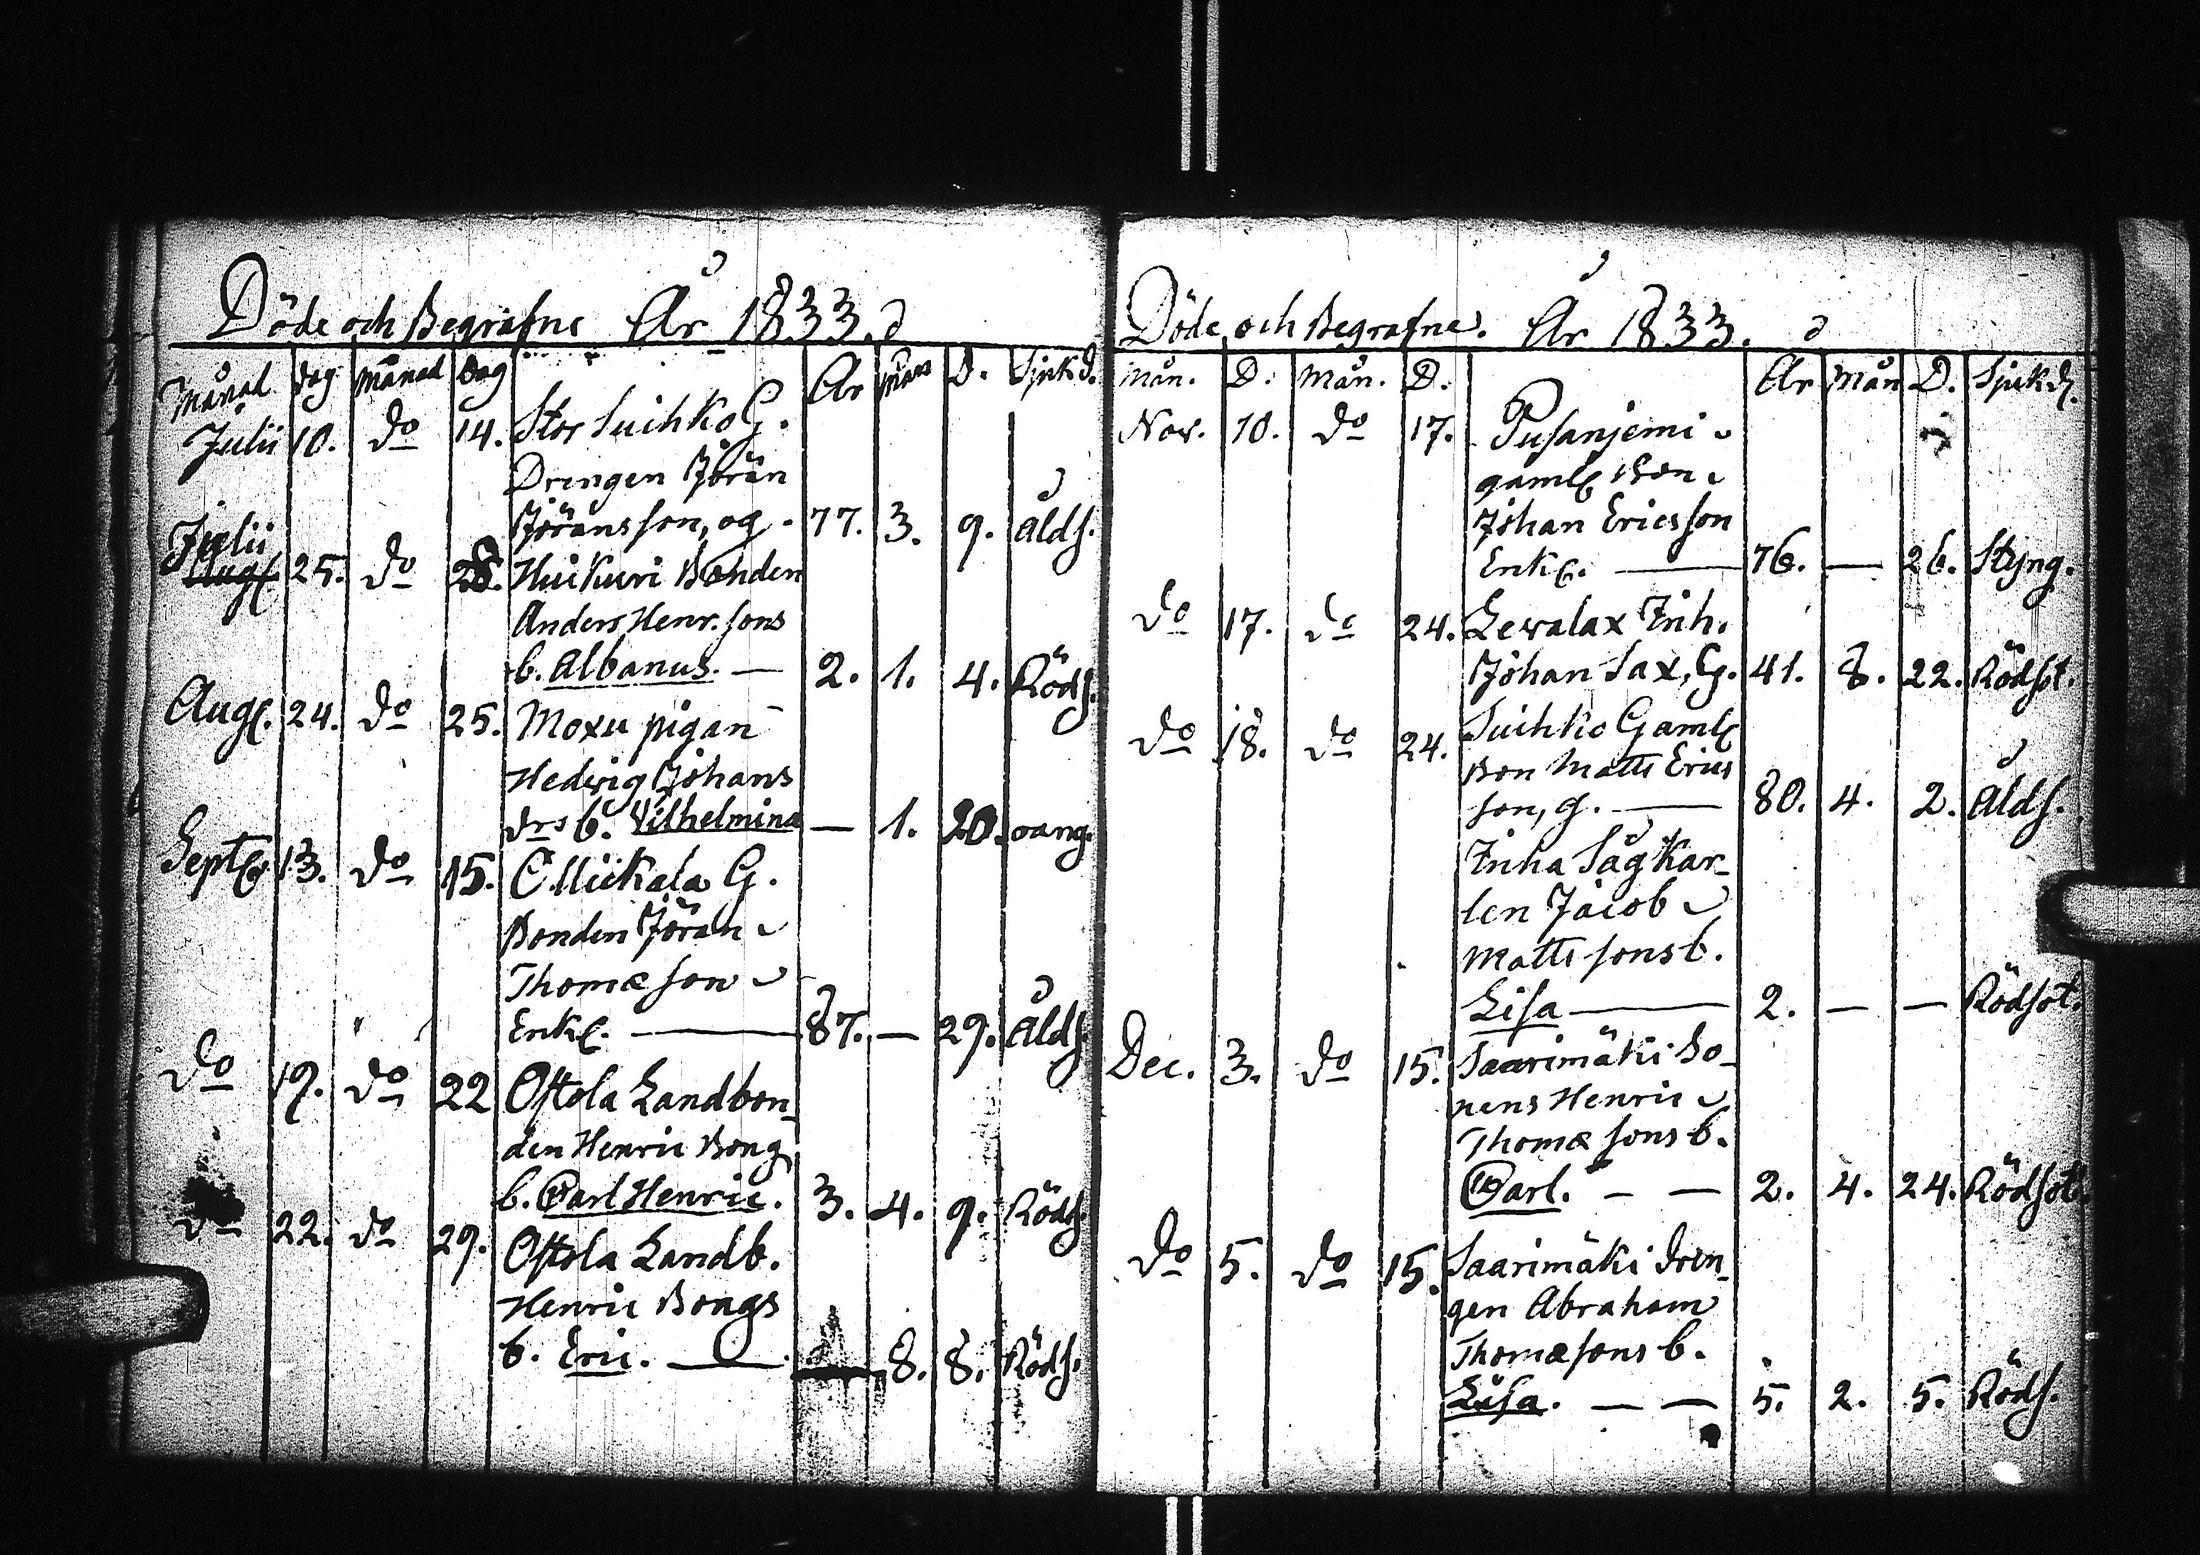 Döde och Begrafne År 1833.
Månad Dag Månad Dag År Mån D. Sjukd.
Julii 10. do 14. Stor Suihko G.
Drengen Jöran
Jöransson, og. 77. 3. 9. Ålds.
Julii 25. do 28. Huikuri Bonden
Anders Henr.sons
b. Albanus. — 2. 1. 4. Röds.
Aug. 24. do 25. Moxu pigan
Hedvig Johans
drs b. Vilhelmina — 1. 20. oang.
Sept. 13. do 15. Ollickala G.
Bonden Jöran
Thomæson
Enk. — 87. — 29. Ålds.
do 19. do 22 Ostola Landbon-
den Henric Bong
b. Carl Henric. 3. 4. 9. Röds.
do 22. do 29. Ostola Landb.
Henric Bongs
b. Eric. — 8. 8. Röds.
Döde och Begrafne. År 1833.
Mån. D. Mån. D. År Mån D. Sjukd.
Nov. 10. do 17. Pusanjemi
gaml Bon
Johan Ericsson
Enk. — 76. — 26. Styng.
do 17. do 24. Levalax Inh.
Johan Sax, G. 41. 8. 22. Rödsot.
do 18. do 24. Suihko Gaml
Bon Matts Erics
son, g. — 80. 4. 2. Ålds.
Inha Sågkar-
len Jacob
Mattssons b.
Lisa — 2. — — Rödsot.
Dec. 3. do 15. Saarimäki So-
nens Henric
Thomæsons b.
Carl. — — 2. 4. 24. Rödsot.
do 5. do 15. Saarimäki Dren-
gen Abraham
Thomæsons b.
Lisa. — — 5. 2. 5. Röds.